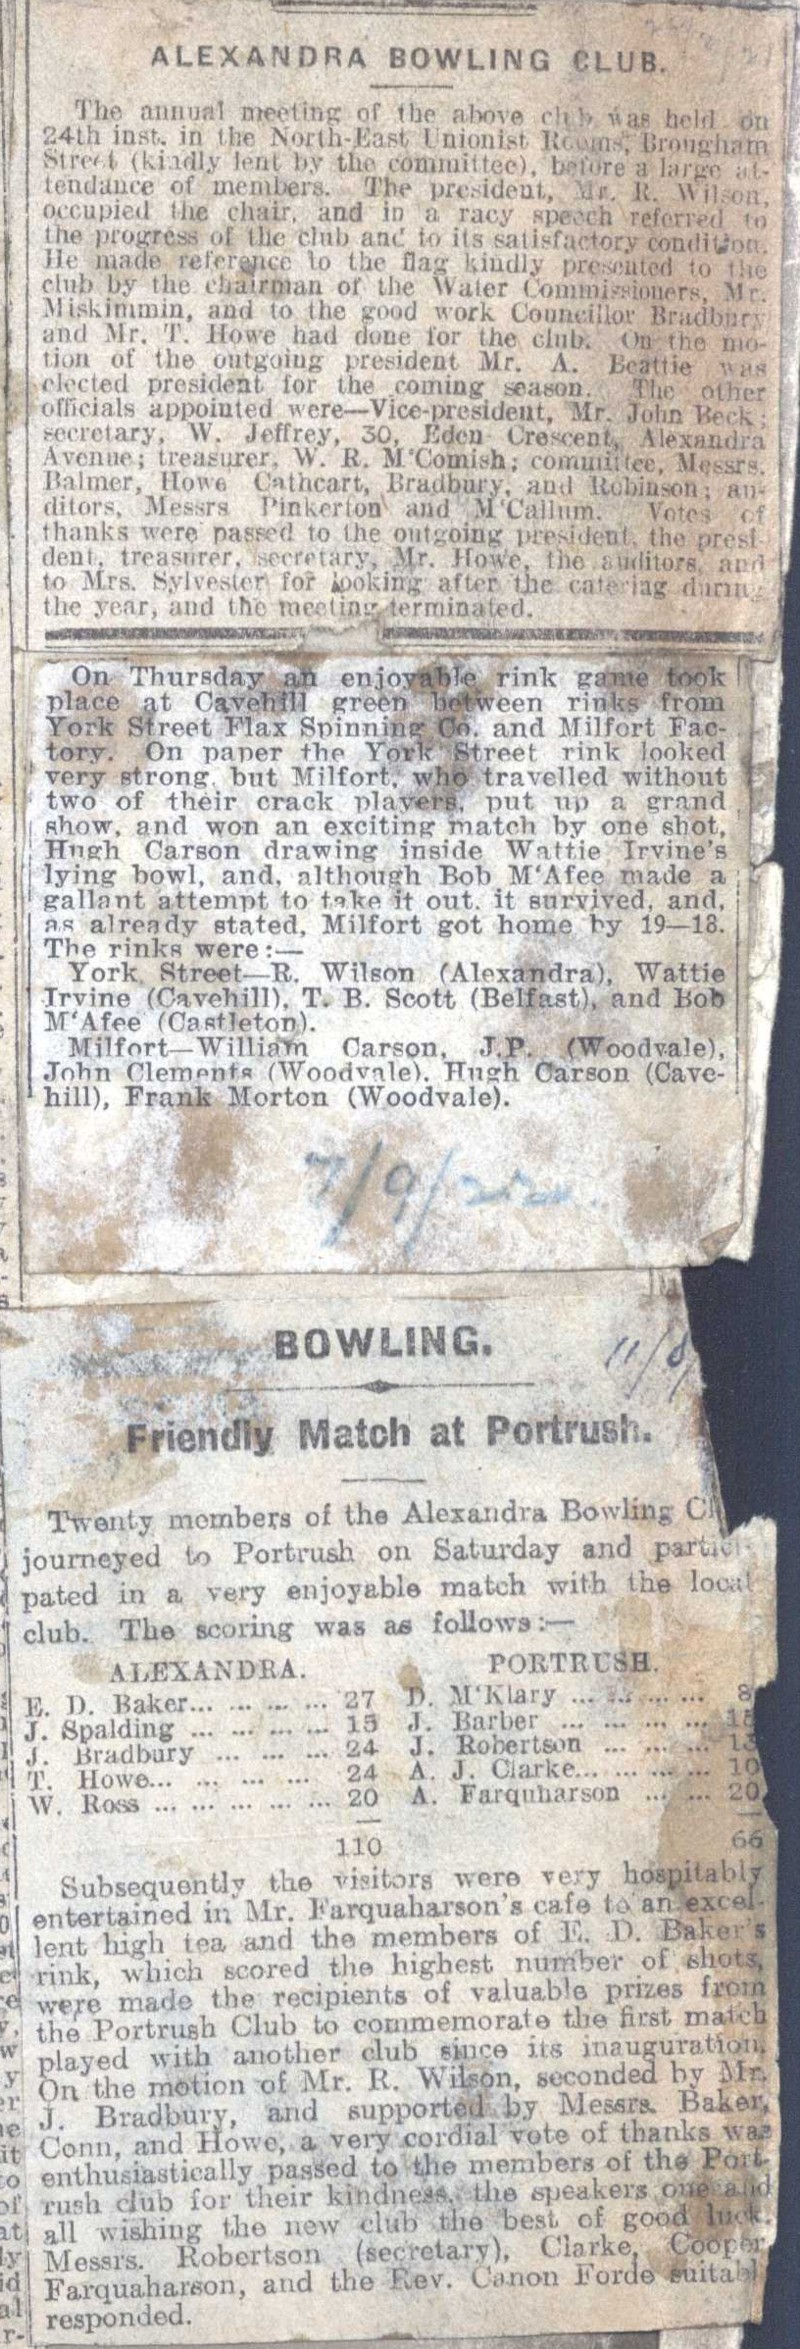 ALEXANDRA BOWLING CLUB.
The annual meeting of the above club was held on
24th inst. in the North-East Unionist Rooms, Brougham
Street (kindly lent by the committee), before a large at-
tendance of members. The president, Mr. R. Wilson,
occupied the chair, and in a racy speech referred to
the progress of the club and to its satisfactory condition.
He made reference to the flag kindly presented to the
club by the chairman of the Water Commissioners, Mr.
Miskimmin, and to the good work Councillor Bradbury
and Mr. T. Howe had done for the club. On the mo-
tion of the outgoing president Mr. A. Beattie was
elected president for the coming season. The other
officials appointed were—Vice-president, Mr. John Beck;
secretary, W. Jeffrey, 30, Eden Crescent, Alexandra
Avenue; treasurer, W. R. M'Comish; committee, Messrs.
Balmer, Howe Cathcart, Bradbury, and Robinson; au-
ditors, Messrs Pinkerton and M'Callum. Votes of
thanks were passed to the outgoing president, the presi-
dent, treasurer, secretary, Mr. Howe, the auditors, and
to Mrs. Sylvester for looking after the catering during
the year, and the meeting terminated.
On Thursday an enjoyable rink game took
place at Cavehill green between rinks from
York Street Flax Spinning Co. and Milfort Fac-
tory. On paper the York Street rink looked
very strong, but Milfort, who travelled without
two of their crack players, put up a grand
show, and won an exciting match by one shot,
Hugh Carson drawing inside Wattie Irvine's
lying bowl, and, although Bob M'Afee made a
gallant attempt to take it out, it survived, and,
as already stated, Milfort got home by 19—18.
The rinks were:—
York Street—R. Wilson (Alexandra), Wattie
Irvine (Cavehill), T. B. Scott (Belfast), and Bob
M'Afee (Castleton).
Milfort—William Carson, J.P. (Woodvale),
John Clements (Woodvale), Hugh Carson (Cave-
hill), Frank Morton (Woodvale).
7/9/22.
BOWLING.
11/8/
Friendly Match at Portrush.
Twenty members of the Alexandra Bowling Cl
journeyed to Portrush on Saturday and partici-
pated in a very enjoyable match with the local
club. The scoring was as follows:—
ALEXANDRA. PORTRUSH.
E. D. Baker... ... ... ... 27 D. M'Klary ... ... ... ... 8
J. Spalding ... ... ... ... 15 J. Barber ... ... ... ... 15
J. Bradbury ... ... ... 24 J. Robertson ... ... ... 13
T. Howe... ... ... ... 24 A. J. Clarke... ... ... ... 10
W. Ross ... ... ... ... ... 20 A. Farquharson ... ... 20
110 66
Subsequently the visitors were very hospitably
entertained in Mr. Farquaharson's cafe to an excel-
lent high tea and the members of E. D. Baker's
rink, which scored the highest number of shots,
were made the recipients of valuable prizes from
the Portrush Club to commemorate the first match
played with another club since its inauguration.
On the motion of Mr. R. Wilson, seconded by Mr.
J. Bradbury, and supported by Messrs. Baker,
Conn, and Howe, a very cordial vote of thanks was
enthusiastically passed to the members of the Port-
rush club for their kindness, the speakers one and
all wishing the new club the best of good luck.
Messrs. Robertson (secretary), Clarke, Cooper,
Farquaharson, and the Rev. Canon Forde suitabl
responded.